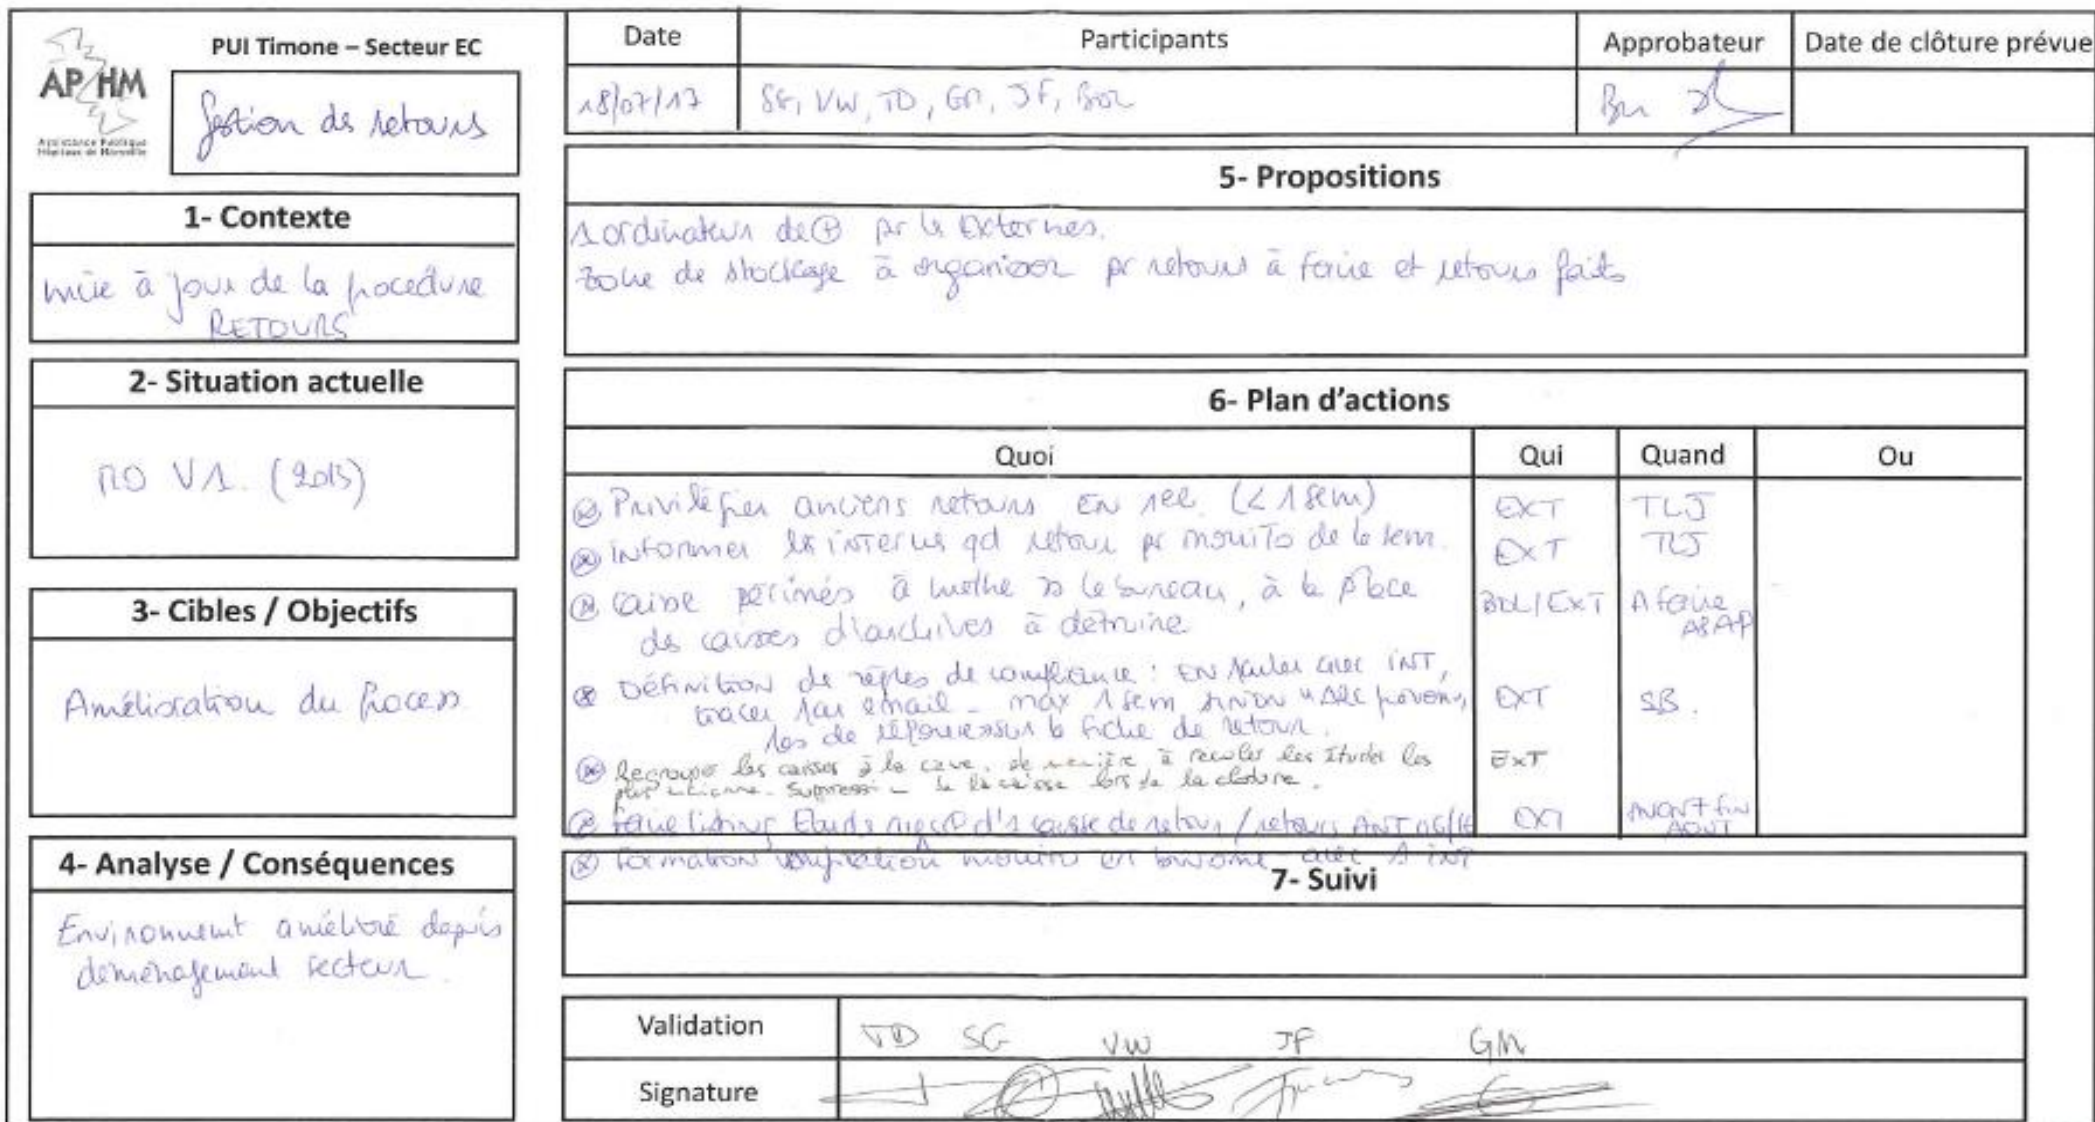 AP/HM
Assistance Publique
Hôpitaux de Marseille
PUI Timone – Secteur EC
Gestion des retours
Date
Participants
Approbateur
Date de clôture prévue
18/07/17
SG, VW, TD, GM, JF, BDL
1- Contexte
mise à jour de la procédure
RETOURS
2- Situation actuelle
MO V1. (2015)
3- Cibles / Objectifs
Amélioration du Process
4- Analyse / Conséquences
Environnement amélioré depuis
déménagement secteur.
5- Propositions
1 ordinateur de ⊕ pr les Externes.
Zone de stockage à organiser pr retours à faire et retours faits
6- Plan d'actions
Quoi
Qui
Quand
Ou
Privilégier anciens retours EN 1er (< 1 sem) EXT TLJ
Informer les internes qd retour pr monito de la sem. EXT TLJ
Caisse périmés à mettre ds le bureau, à la place BDL/EXT A faire
des caisses d'archives à détruire ASAP
Définition de règles de confiance : EN parler avec INT,
tracer par email - max 1 sem sinon "ARC prévenu, EXT SB.
pas de réponse" sur la fiche de retour.
Regrouper les caisses à la cave, de manière à reculer les études les EXT
plus anciennes. Suppression de la caisse lors de la clôture.
Faire listing d'1 caisse de retour / retours EXT AVANT fin
AOUT
Formation vérification monito en binome avec 1 INT
7- Suivi
Validation
TD SG VW JF GM
Signature